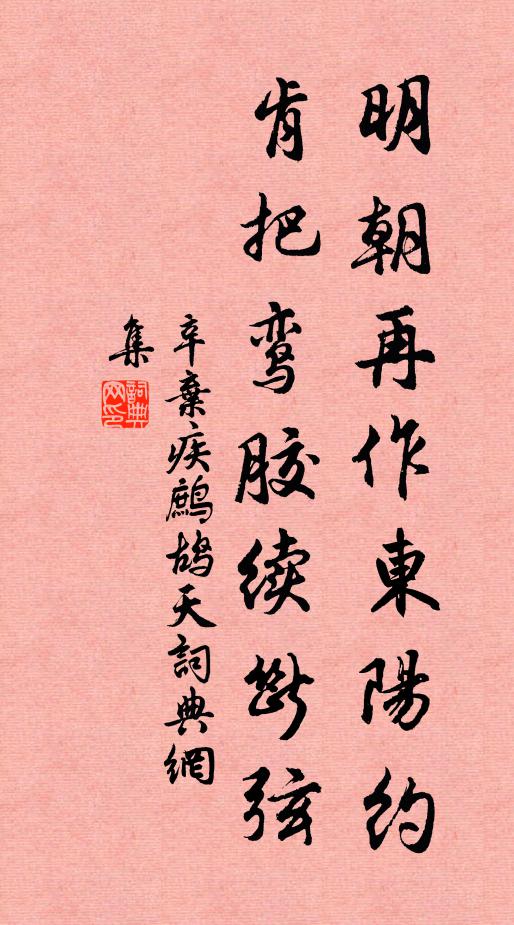 明朝再作東陽約
肯把鸾胶续斷弦
辛棄疾鷓鴣天詞典網
集
詞典網印